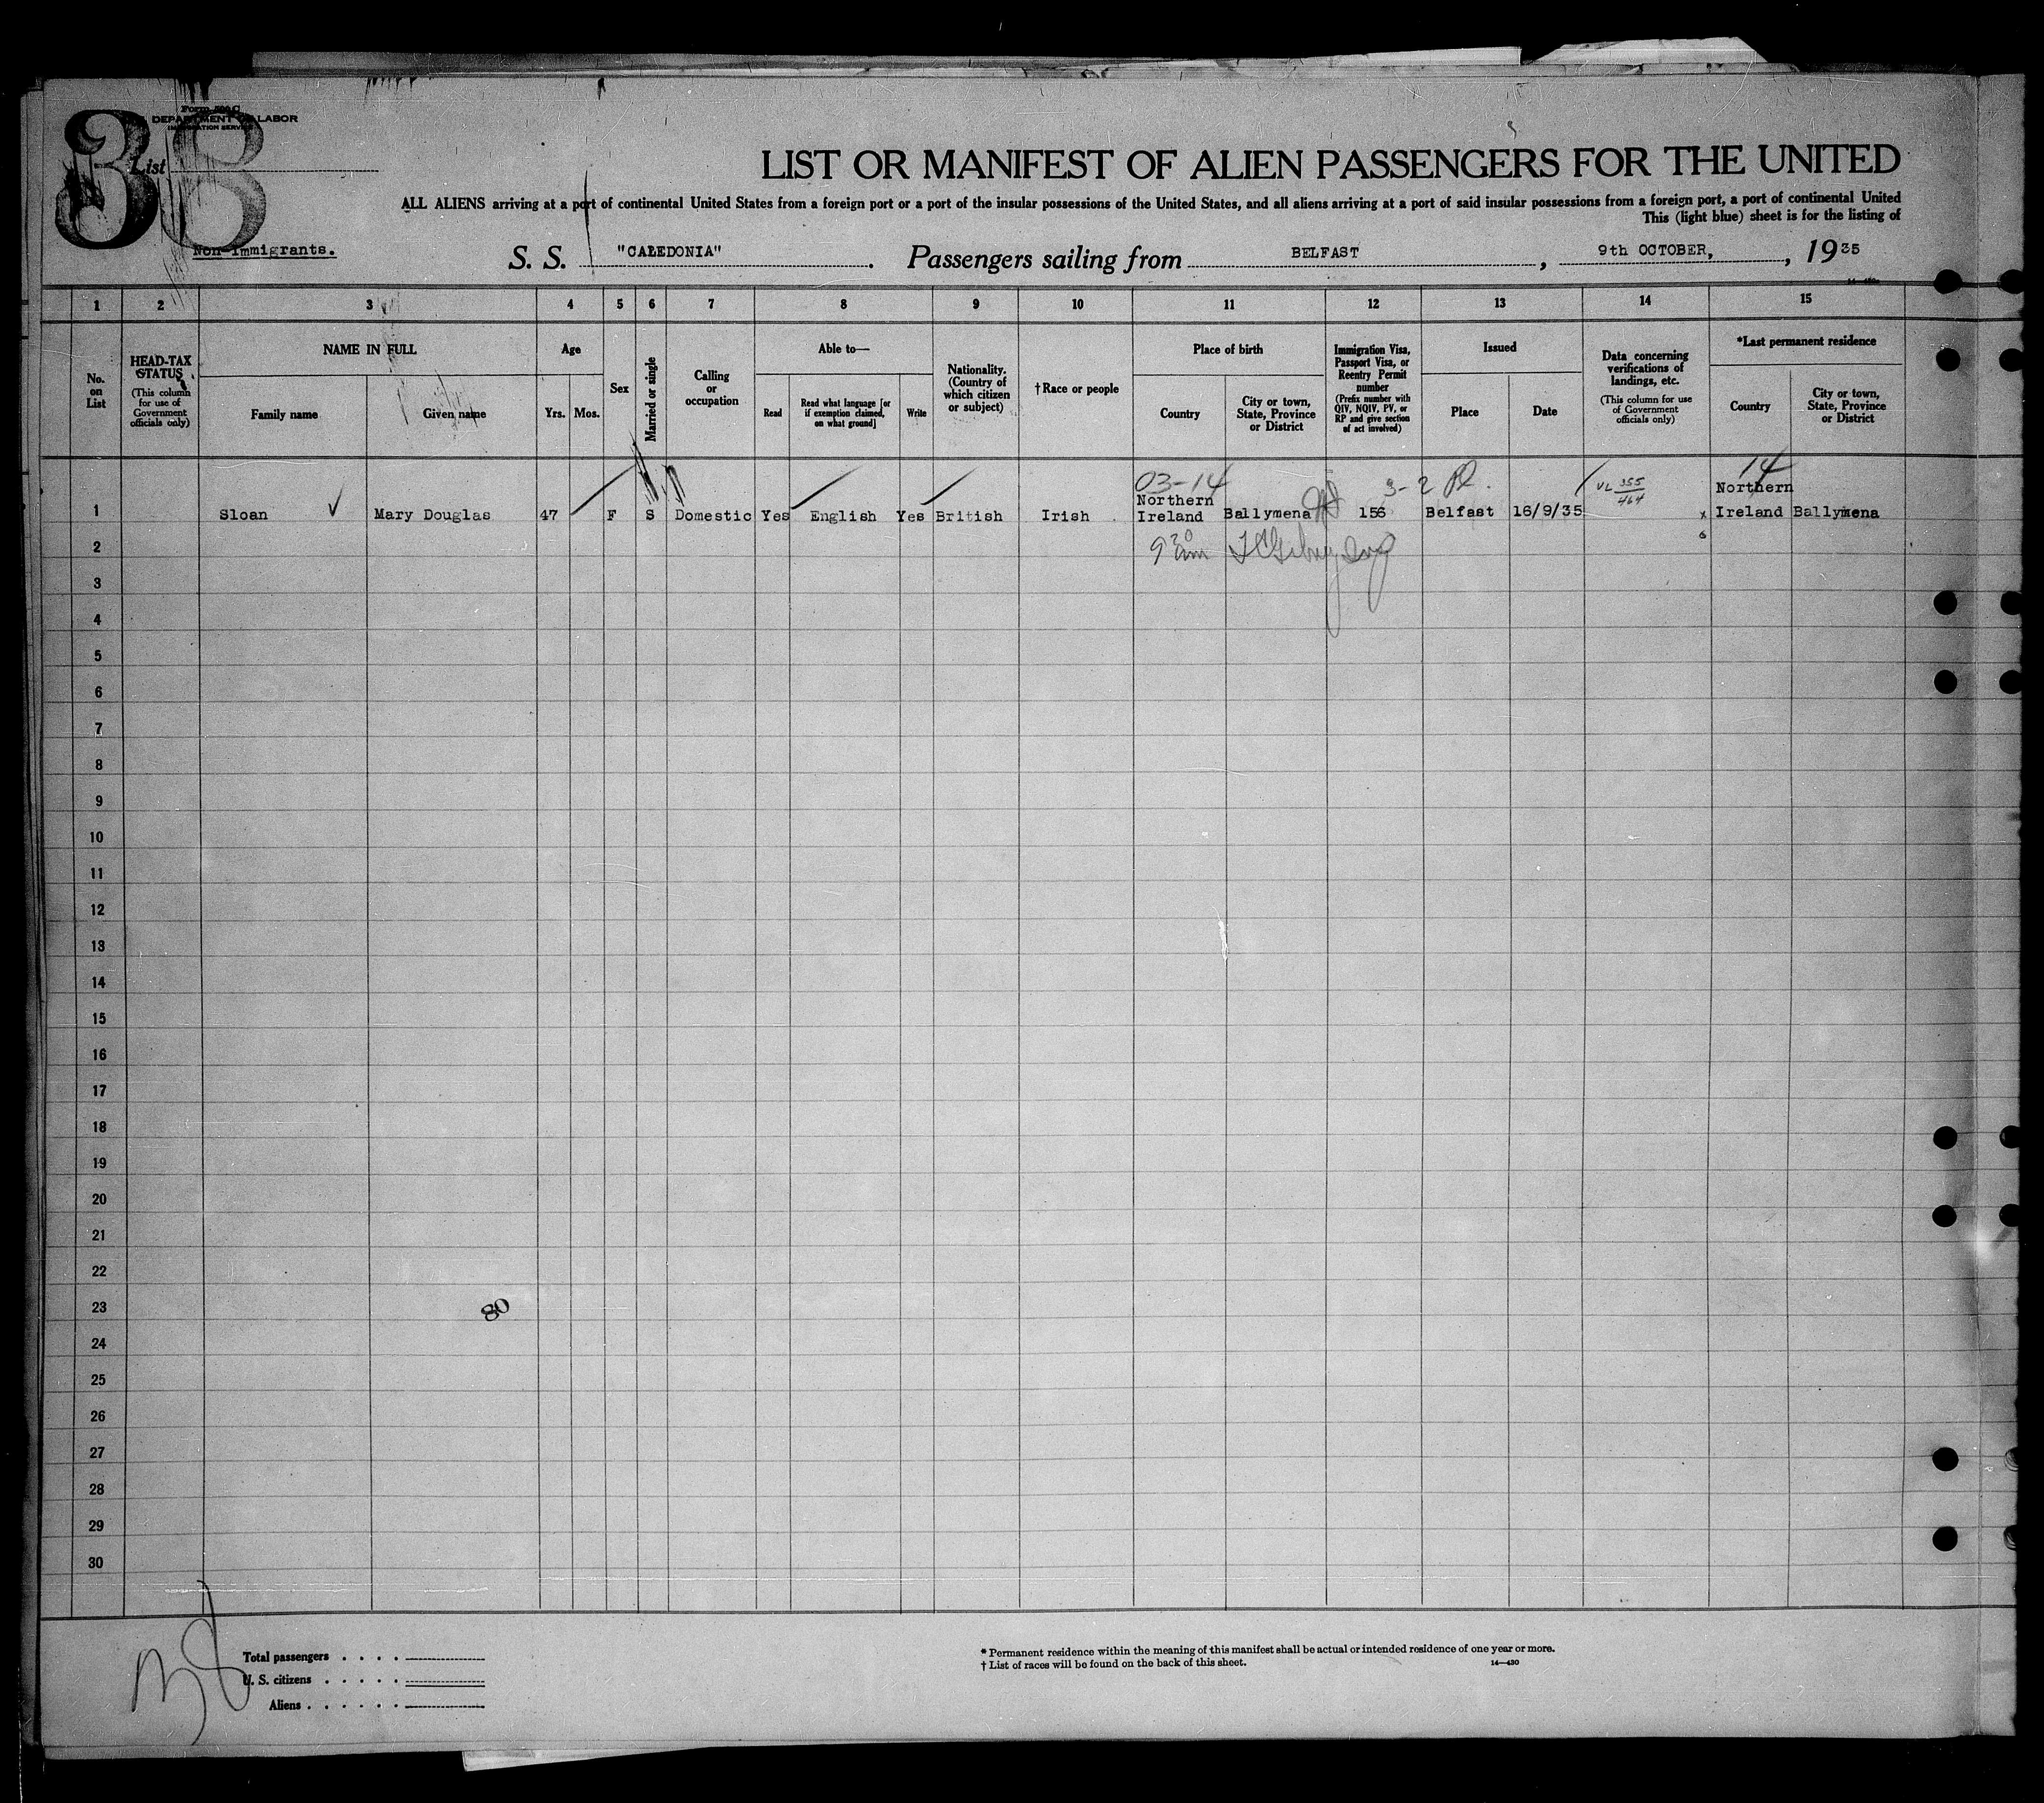 38
Form 500 C
DEPARTMENT OF LABOR
IMMIGRATION SERVICE
List
LIST OR MANIFEST OF ALIEN PASSENGERS FOR THE UNITED
ALL ALIENS arriving at a port of continental United States from a foreign port or a port of the insular possessions of the United States, and all aliens arriving at a port of said insular possessions from a foreign port, a port of continental United
This (light blue) sheet is for the listing of
Non-Immigrants.
S. S. "CALEDONIA". Passengers sailing from BELFAST, 9th OCTOBER, , 1935
1 2 3 4 5 6 7 8 9 10 11 12 13 14 15
No. on List
HEAD-TAX STATUS
(This column for use of Government officials only)
NAME IN FULL
Family name
Given name
Age
Yrs. Mos.
Sex
Married or single
Calling or occupation
Able to—
Read
Read what language [or if exemption claimed, on what ground]
Write
Nationality. (Country of which citizen or subject)
†Race or people
Place of birth
Country
City or town, State, Province or District
Immigration Visa, Passport Visa, or Reentry Permit number
(Prefix number with QIV, NQIV, PV, or RP and give section of act involved)
Issued
Place
Date
Data concerning verifications of landings, etc.
(This column for use of Government officials only)
*Last permanent residence
Country
City or town, State, Province or District
03-14 3-2 14
VL 355/464
1 Sloan Mary Douglas 47 F S Domestic Yes English Yes British Irish Northern Ireland Ballymena 156 Belfast 16/9/35 x Northern Ireland Ballymena
6
2
3
4
5
6
7
8
9
10
11
12
13
14
15
16
17
18
19
20
21
22
23
80
24
25
26
27
28
29
30
38
Total passengers . . . .
U. S. citizens . . . . .
Aliens . . . . . .
* Permanent residence within the meaning of this manifest shall be actual or intended residence of one year or more.
† List of races will be found on the back of this sheet.
14—430